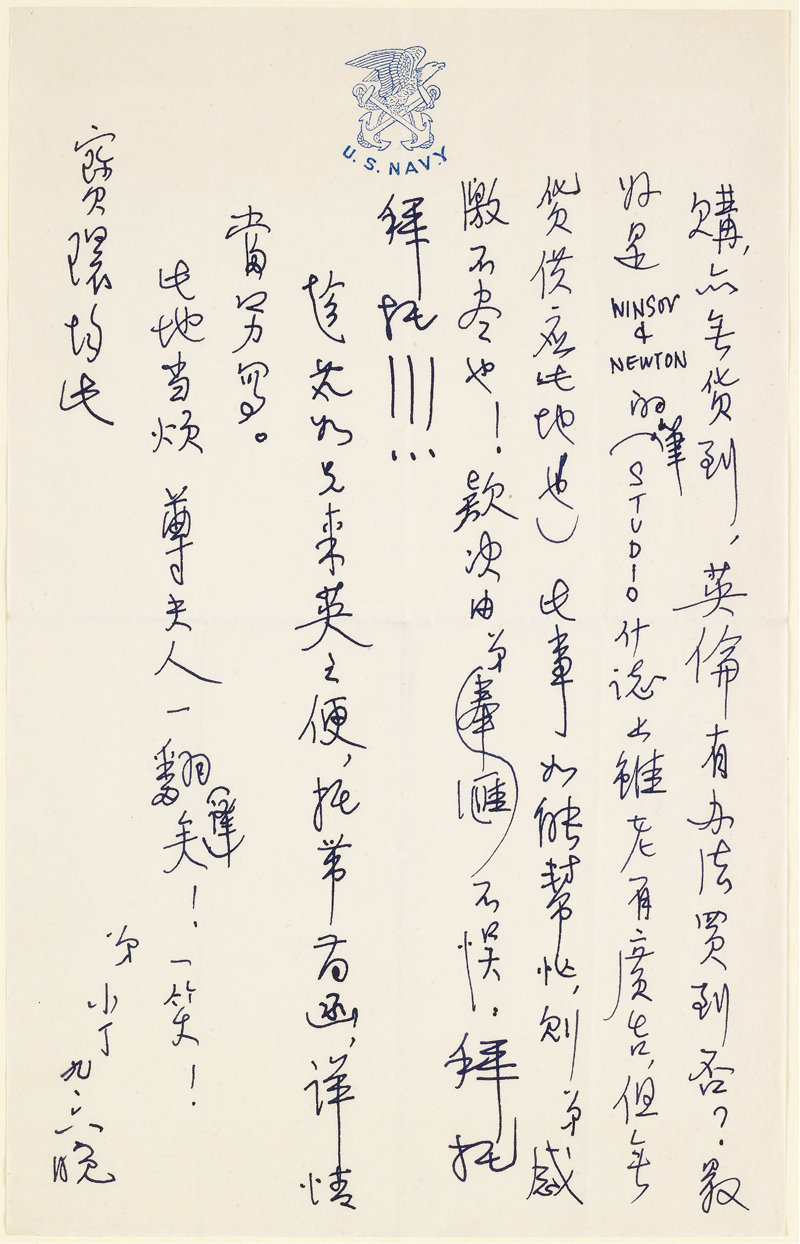 U.S. NAVY
購，亦無货到，英倫有办法買到否？最
好是 WINSOR & NEWTON 的筆（STUDIO 什誌上雖老有廣告，但無
货供应此地也）此事如能幫忙，则弟感
激不尽也！款决由弟奉匯不误．拜托
拜托！！！
趁苑如兄来英之便，托带商函，详情
当另寫。
此地当烦 尊夫人一翻譯矣！一笑！
寶環均此
弟 小丁
九.六晚